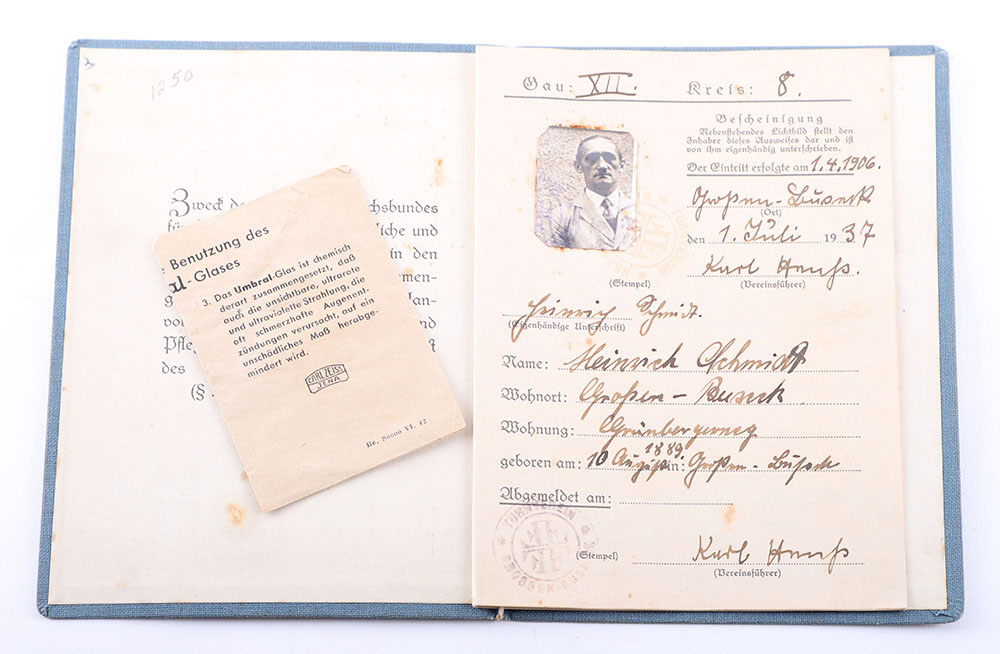 3
1250
Zweck de chsbundes
fü liche und
in den
men-
Man-
vo
Pfleg nd
des st
(§
Benutzung des
al-Glases
3. Das Umbral-Glas ist chemisch
derart zusammengesetzt, daß
auch die unsichtbare, ultrarote
und ultraviolette Strahlung, die
oft schmerzhafte Augenent-
zündungen verursacht, auf ein
unschädliches Maß herabge-
mindert wird.
CARL ZEISS
JENA
Hv. 80000 VI. 42
Gau: XII. Kreis: 8.
Bescheinigung
Nebenstehendes Lichtbild stellt den
Inhaber dieses Ausweises dar und ist
von ihm eigenhändig unterschrieben.
Der Eintritt erfolgte am 1.4.1906.
Großen-Buseck
(Ort)
den 1. Juli 1937
Karl
(Stempel) (Vereinsführer)
Heinrich Schmidt.
(Eigenhändige Unterschrift)
Name: Heinrich Schmidt
Wohnort: Großen-Buseck
Wohnung: Grünbergerweg
geboren am: 10 August 1889 in: Großen-Buseck
Abgemeldet am:
TURNVEREIN
GROSSEN-BUSECK
(Stempel) Karl
(Vereinsführer)